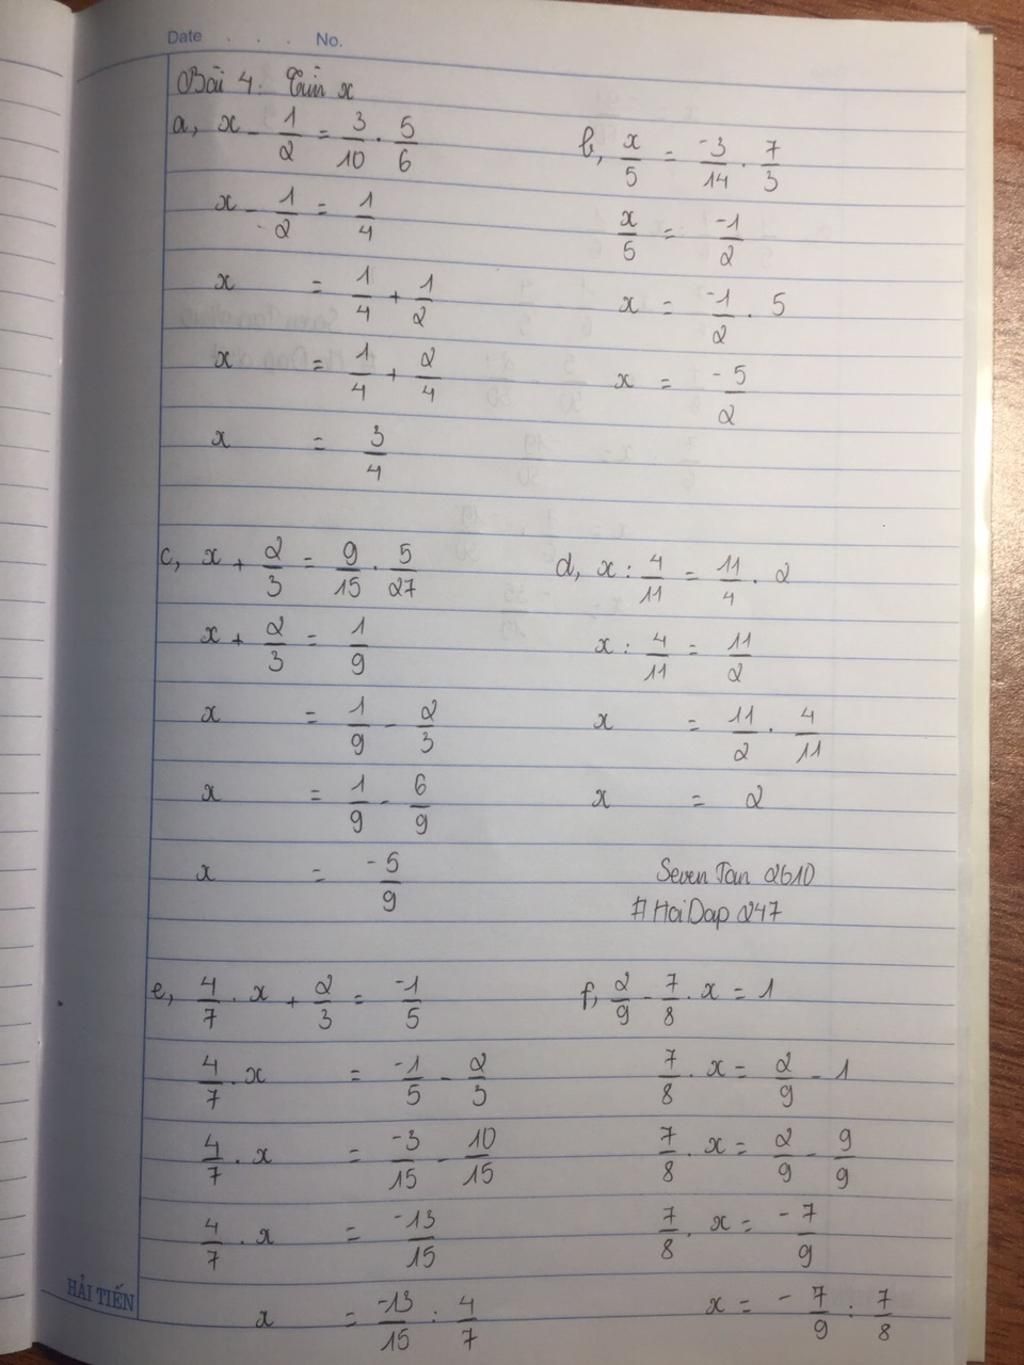 Date . . . No.
Bài 4: Tìm x
a, x - 1/2 = 3/10 . 5/6
x - 1/2 = 1/4
x = 1/4 + 1/2
x = 1/4 + 2/4
x = 3/4
b, x/5 = -3/14 . 7/3
x/5 = -1/2
x = -1/2 . 5
x = -5/2
c, x + 2/3 = 9/15 . 5/27
x + 2/3 = 1/9
x = 1/9 - 2/3
x = 1/9 - 6/9
x = -5/9
d, x : 4/11 = 11/4 . 2
x : 4/11 = 11/2
x = 11/2 . 4/11
x = 2
Seven Tan 2610
#HoiDap 247
e, 4/7 . x + 2/3 = -1/5
4/7 . x = -1/5 - 2/3
4/7 . x = -3/15 - 10/15
4/7 . x = -13/15
x = -13/15 : 4/7
f, 2/9 - 7/8 . x = 1
7/8 . x = 2/9 - 1
7/8 . x = 2/9 - 9/9
7/8 . x = -7/9
x = -7/9 : 7/8
HẢI TIẾN